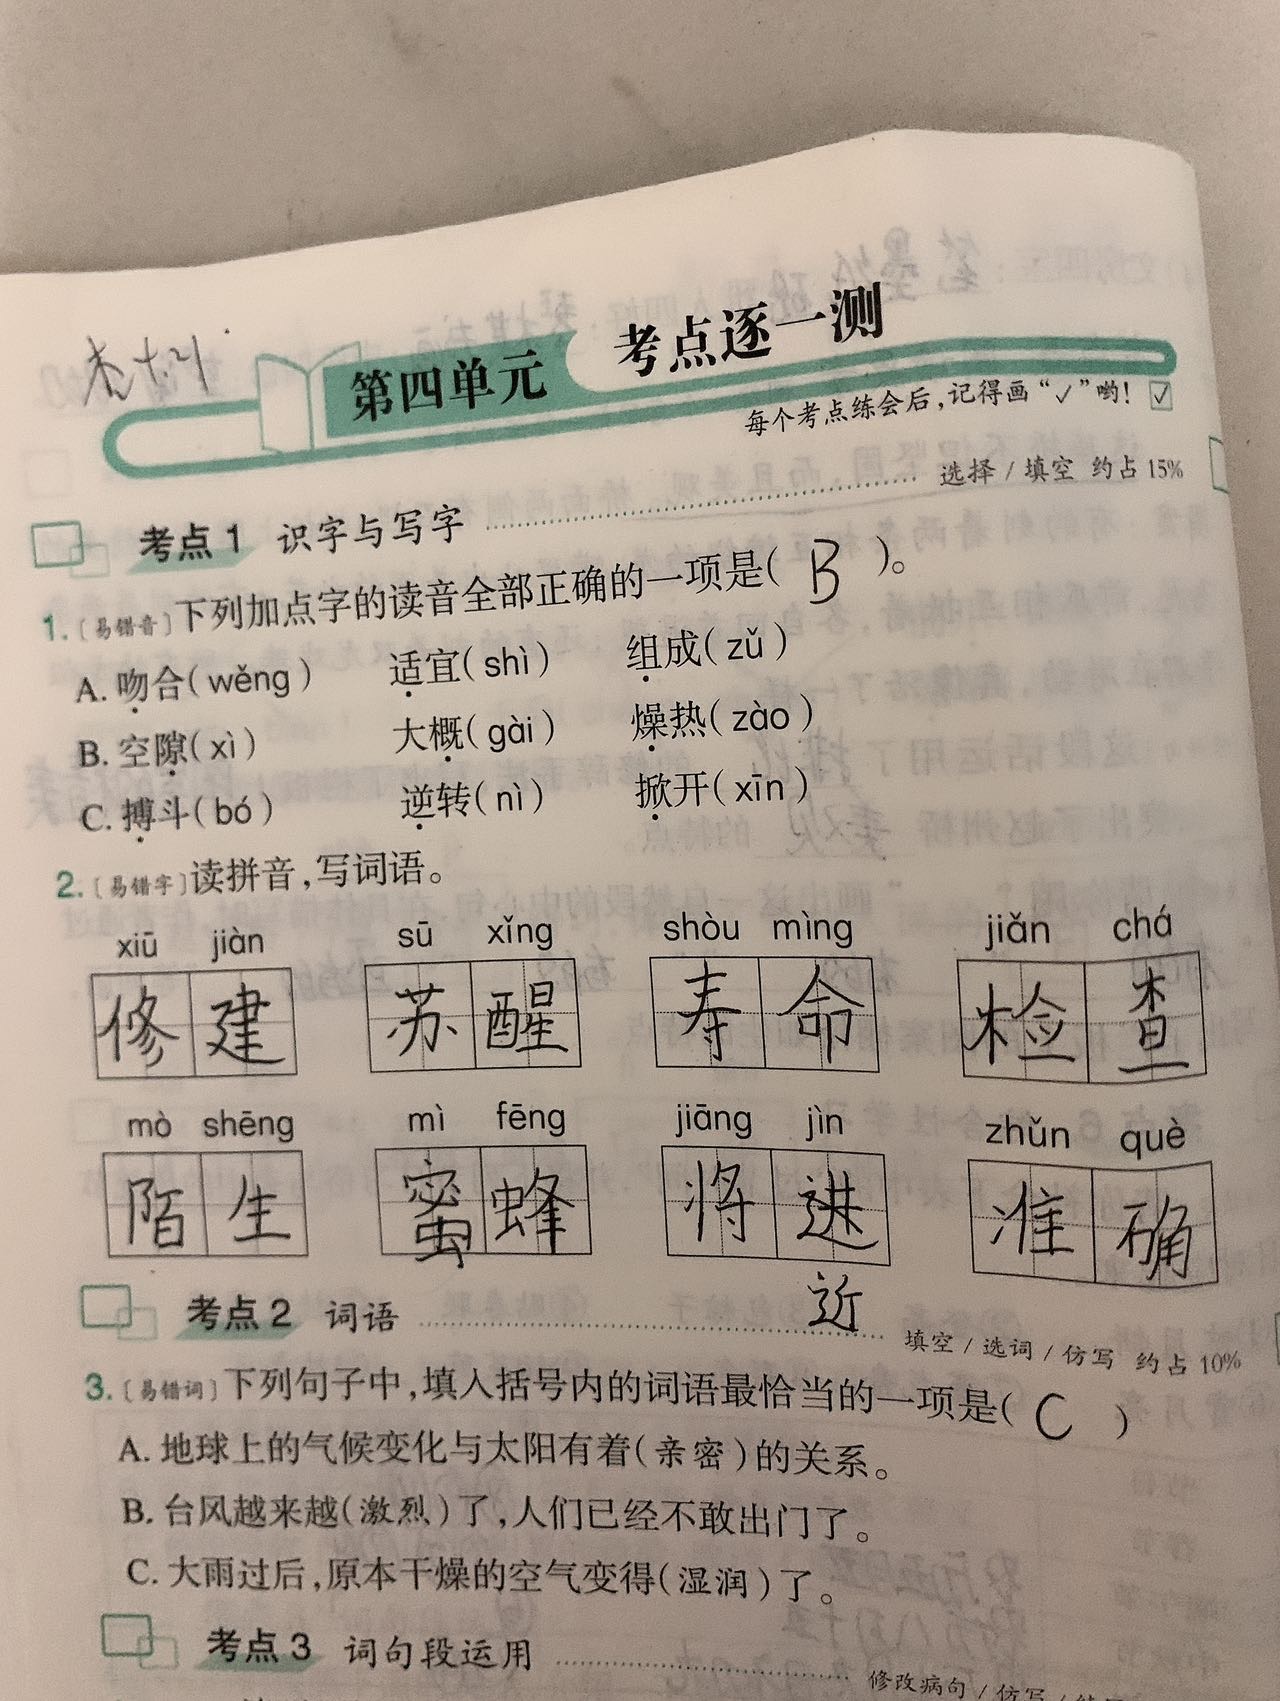 第四单元 考点逐一测
每个考点练会后，记得画“✓”哟！☑
考点1 识字与写字 选择/填空 约占15%
1.［易错音］下列加点字的读音全部正确的一项是( B )。
A. 吻合(wěng) 适宜(shì) 组成(zǔ)
B. 空隙(xì) 大概(gài) 燥热(zào)
C. 搏斗(bó) 逆转(nì) 掀开(xīn)
2.［易错字］读拼音，写词语。
xiū jiàn sū xǐng shòu mìng jiǎn chá
修建 苏醒 寿命 检查
mò shēng mì fēng jiāng jìn zhǔn què
陌生 蜜蜂 将进 准确
近
考点2 词语 填空/选词/仿写 约占10%
3.［易错词］下列句子中，填入括号内的词语最恰当的一项是( C )
A. 地球上的气候变化与太阳有着(亲密)的关系。
B. 台风越来越(激烈)了，人们已经不敢出门了。
C. 大雨过后，原本干燥的空气变得(湿润)了。
考点3 词句段运用 修改病句/仿写